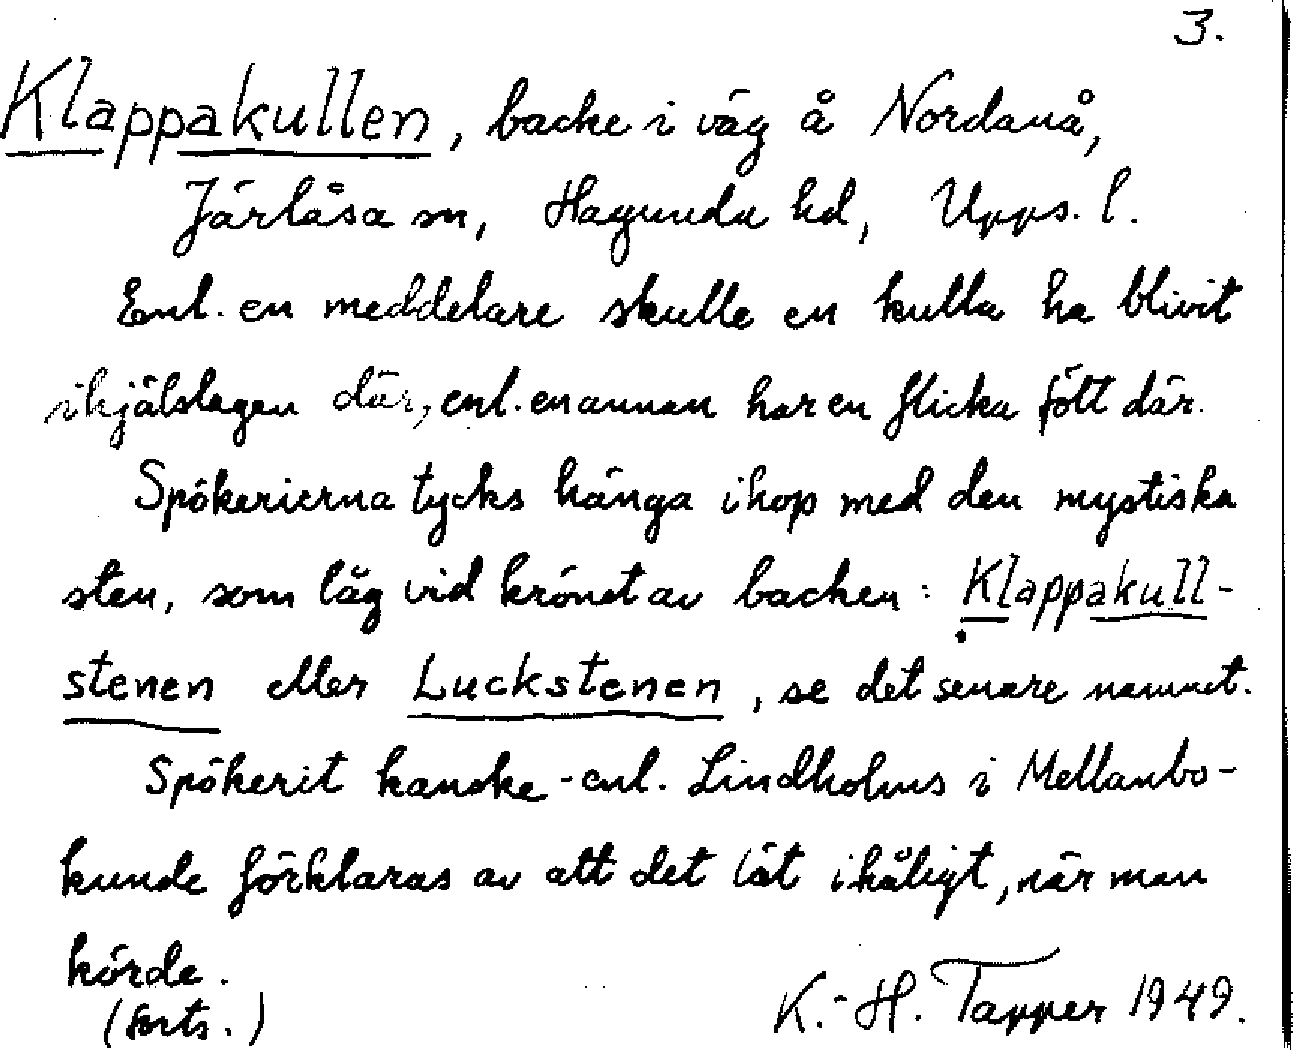 3.
Klappakullen, backe i väg å Nordanå,
Järlåsa sn, Hagunda hd, Upps. l.
Enl. en meddelare skulle en kulla ha blivit
ihjälslagen där, enl. en annan har en flicka fött där.
Spökerierna tycks hänga ihop med den mystiska
sten, som låg vid krönet av backen: Klappakull-
stenen eller Luckstenen, se det senare namnet.
Spökerit kanske - enl. Lindholms i Mellanbo -
kunde förklaras av att det lät ihåligt, när man
körde.
(forts.)
K.-H. Tapper 1949.